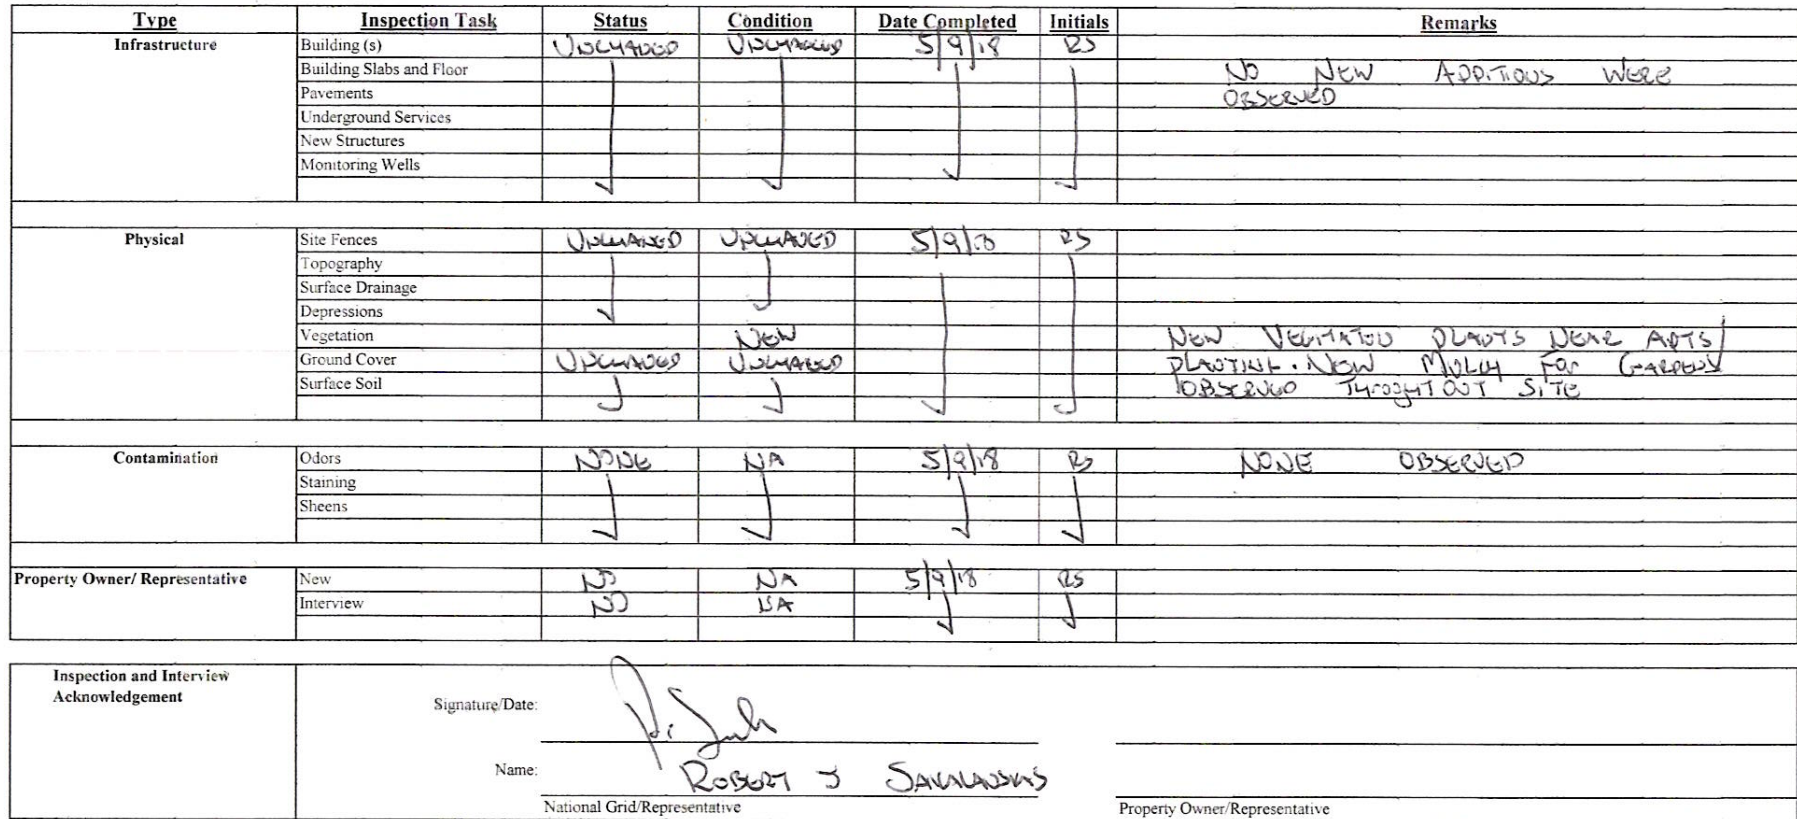 Type Inspection Task Status Condition Date Completed Initials Remarks
Infrastructure Building (s) UNCHANGED UNCHANGED 5/9/18 RS
Building Slabs and Floor NO NEW ADDITIONS WERE
Pavements OBSERVED
Underground Services
New Structures
Monitoring Wells
Physical Site Fences UNCHANGED UNCHANGED 5/9/18 RS
Topography
Surface Drainage
Depressions
Vegetation NEW NEW VEGITATED PLANTS NEAR APTS/
Ground Cover UNCHANGED UNCHANGED PLANTING. NEW MULCH FOR GARDENS
Surface Soil OBSERVED THROUGHTOUT SITE
Contamination Odors NONE NA 5/9/18 RS NONE OBSERVED
Staining
Sheens
Property Owner/ Representative New NO NA 5/9/18 RS
Interview NO NA
Inspection and Interview
Acknowledgement
Signature/Date:
Name: ROBERT J
National Grid/Representative Property Owner/Representative